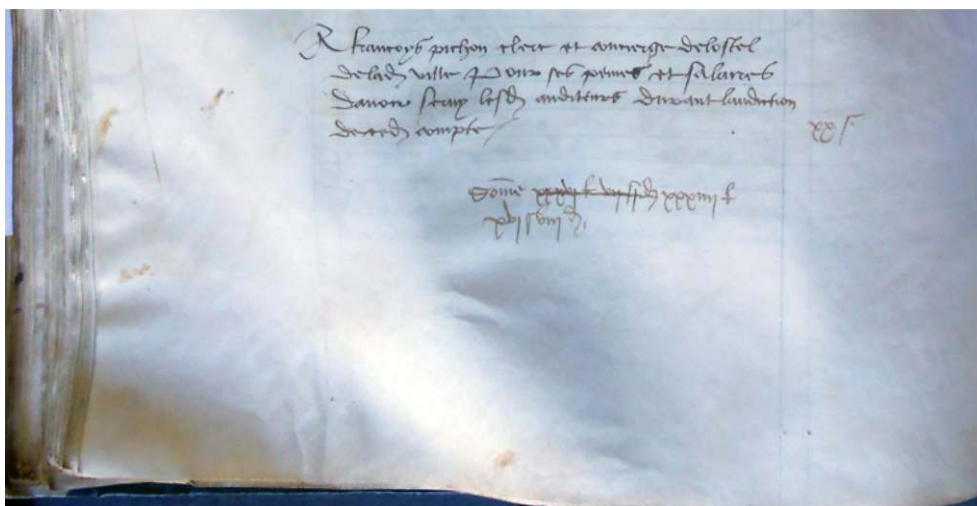 A francoys pichon clerc et concierge delostel
delad ville Pour ses peines et salaires
davoir servy lesd auditeurs durant laudicion
decedit compte
xx s
Somme xxxiiii £
xvi s viii d